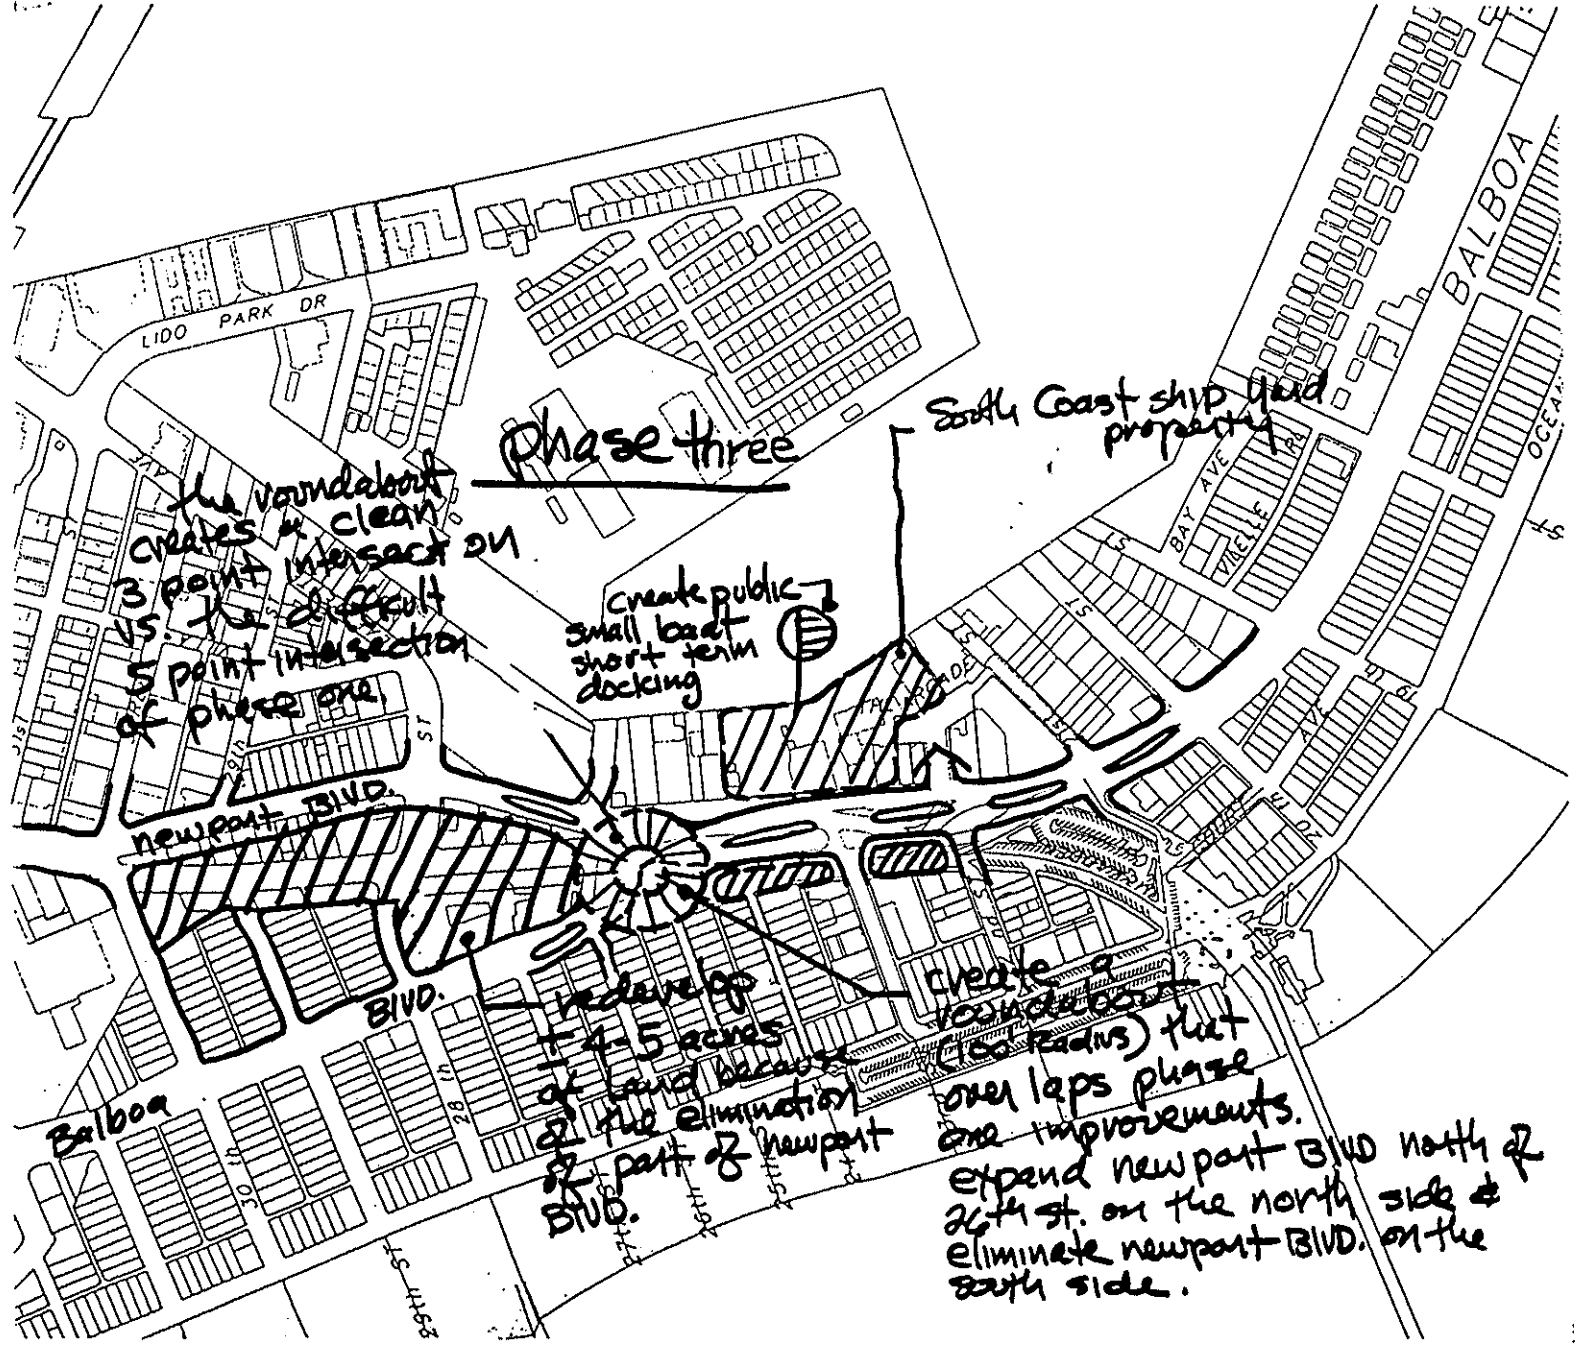 LIDO PARK DR
BALBOA
OCEAN
phase three
South Coast ship yard
property
BAY AVE
VILELLE
PL
AVE
the roundabout
creates a clean
3 point intersection
vs. the difficult
5 point intersection
of phase one.
create public
small boat
short term
docking
ARCADE
ST
ST
ST
ST
19
newport BLVD.
BLVD.
Balboa
redevelop
± 4-5 acres
of land because
of the elimination
of part of newport
BLVD.
create a
roundabout
(100' Radius) that
over laps phase
one improvements.
expand newport BLVD north of
26th st. on the north side &
eliminate newport BLVD. on the
south side.
30 TH
28 TH
29TH ST
27TH
26TH
25TH